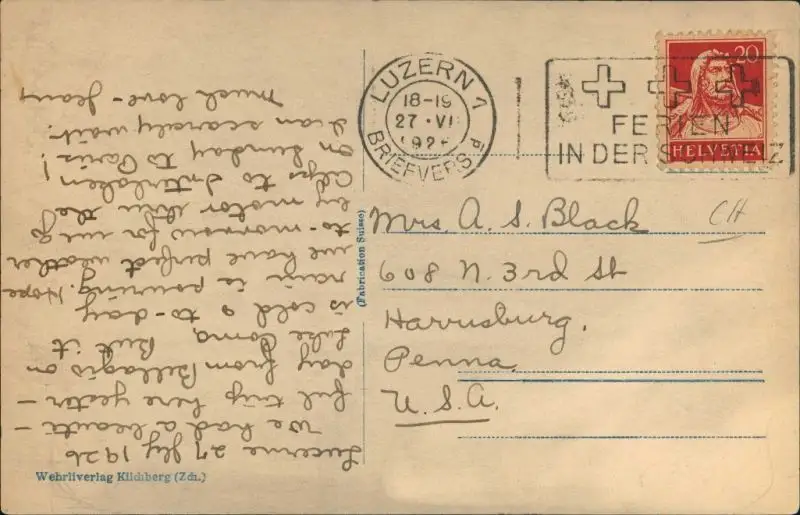 Lucerne 27 Jly 1926
We had a beauti-
ful trip here yester-
day from Bellagio on
Lake Como, But it
is cold & to-day
rain is pouring. Hope
we have perfect weather
to-morrow for we go
by motor thru the
Alps to Interlaken!
On Sunday to Paris!
I can scarcely wait.
Much love - Jeany
Wehrliverlag Kilchberg (Zch.)
(Fabrication Suisse)
LUZERN 1
18-19
27 · VI
192
BRIEFVERS. d
FERIEN
IN DER SCHWEIZ
20
HELVETIA
CH
Mrs. A. S. Black
608 N. 3rd St
Harrisburg,
Penna.
U.S.A.